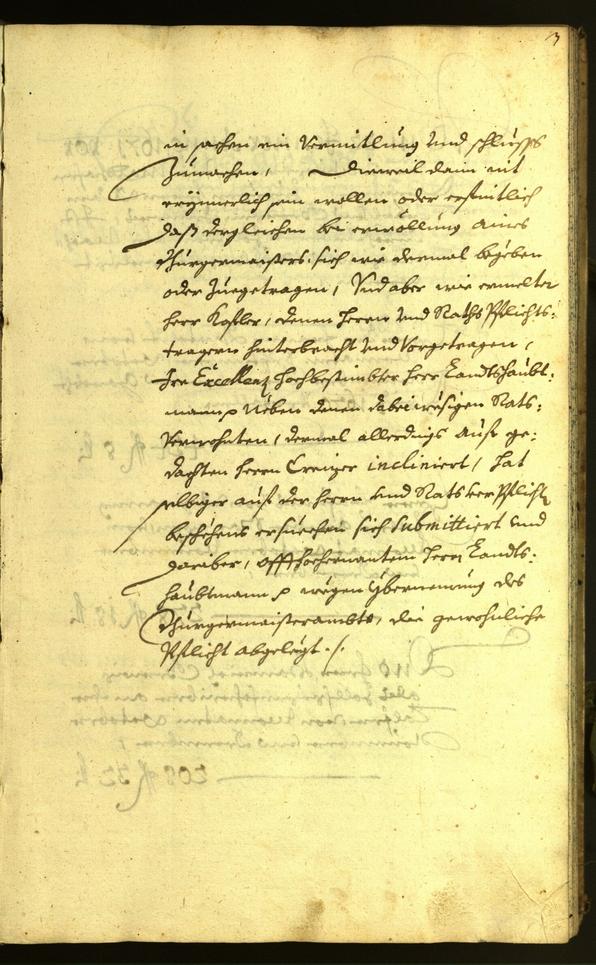 3
in sachen ein Vermitlung und schlusses
Zumachen, Dieweil dann nit
erÿnnerlich sein wollen oder erfintlich
daß dergleichen bei erwöllung aines
Burgermaisters, sich wie dermal begeben
oder Zuegetragen, Und aber wie ermelter
Herr Kofler, denen Herrn und Raths Pflichts:
tragern hinterbracht und Vorgetragen,
Ire Excellenz hochbestimbter Herr Landtshaubt:
mann p Neben denen dabeiwesigen Rats:
Verwohnten, dermal allerdings auf ge:
dachten Herrn Creizer incliniert, hat
selbiger auf der Herrn und Rats verpflicht
beschehens ersuechen sich submittiert und
darüber, offthochernantem Herrn Landts:
haubtmann p wegen Ÿbernemung des
Burgermaisterambts, die gewohnliche
Pflicht abgelegt ./.